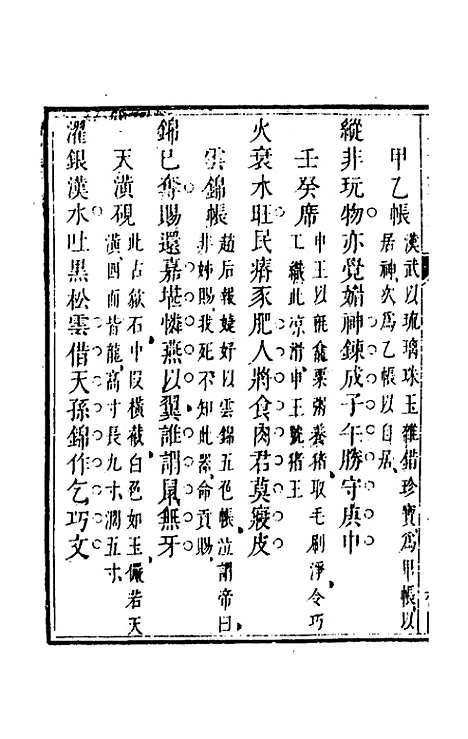 甲乙帳
漢武以琉璃珠玉雜錯珍寶爲甲帳以
居神次爲乙帳以自居
縱非玩物亦覺媚神鍊成子午勝守庚申
壬癸席
申王以氈龕粟粥養豬取毛刷淨令巧
工織此凉滑申王號豬王
火衰水旺民瘠豕肥人將食肉君莫寢皮
雲錦帳
趙后報婕妤以雲錦五色帳泣謂帝曰
非姊賜我死不知此器命貢賜
錦已奪賜還嘉堪憐燕以翼誰謂鼠無牙
天潢硯
此古獄石中段橫截白色如玉儼若天
潢四面皆龍高寸長九寸濶五寸
濯銀漢水吐黑松雲借天孫錦作乞巧文